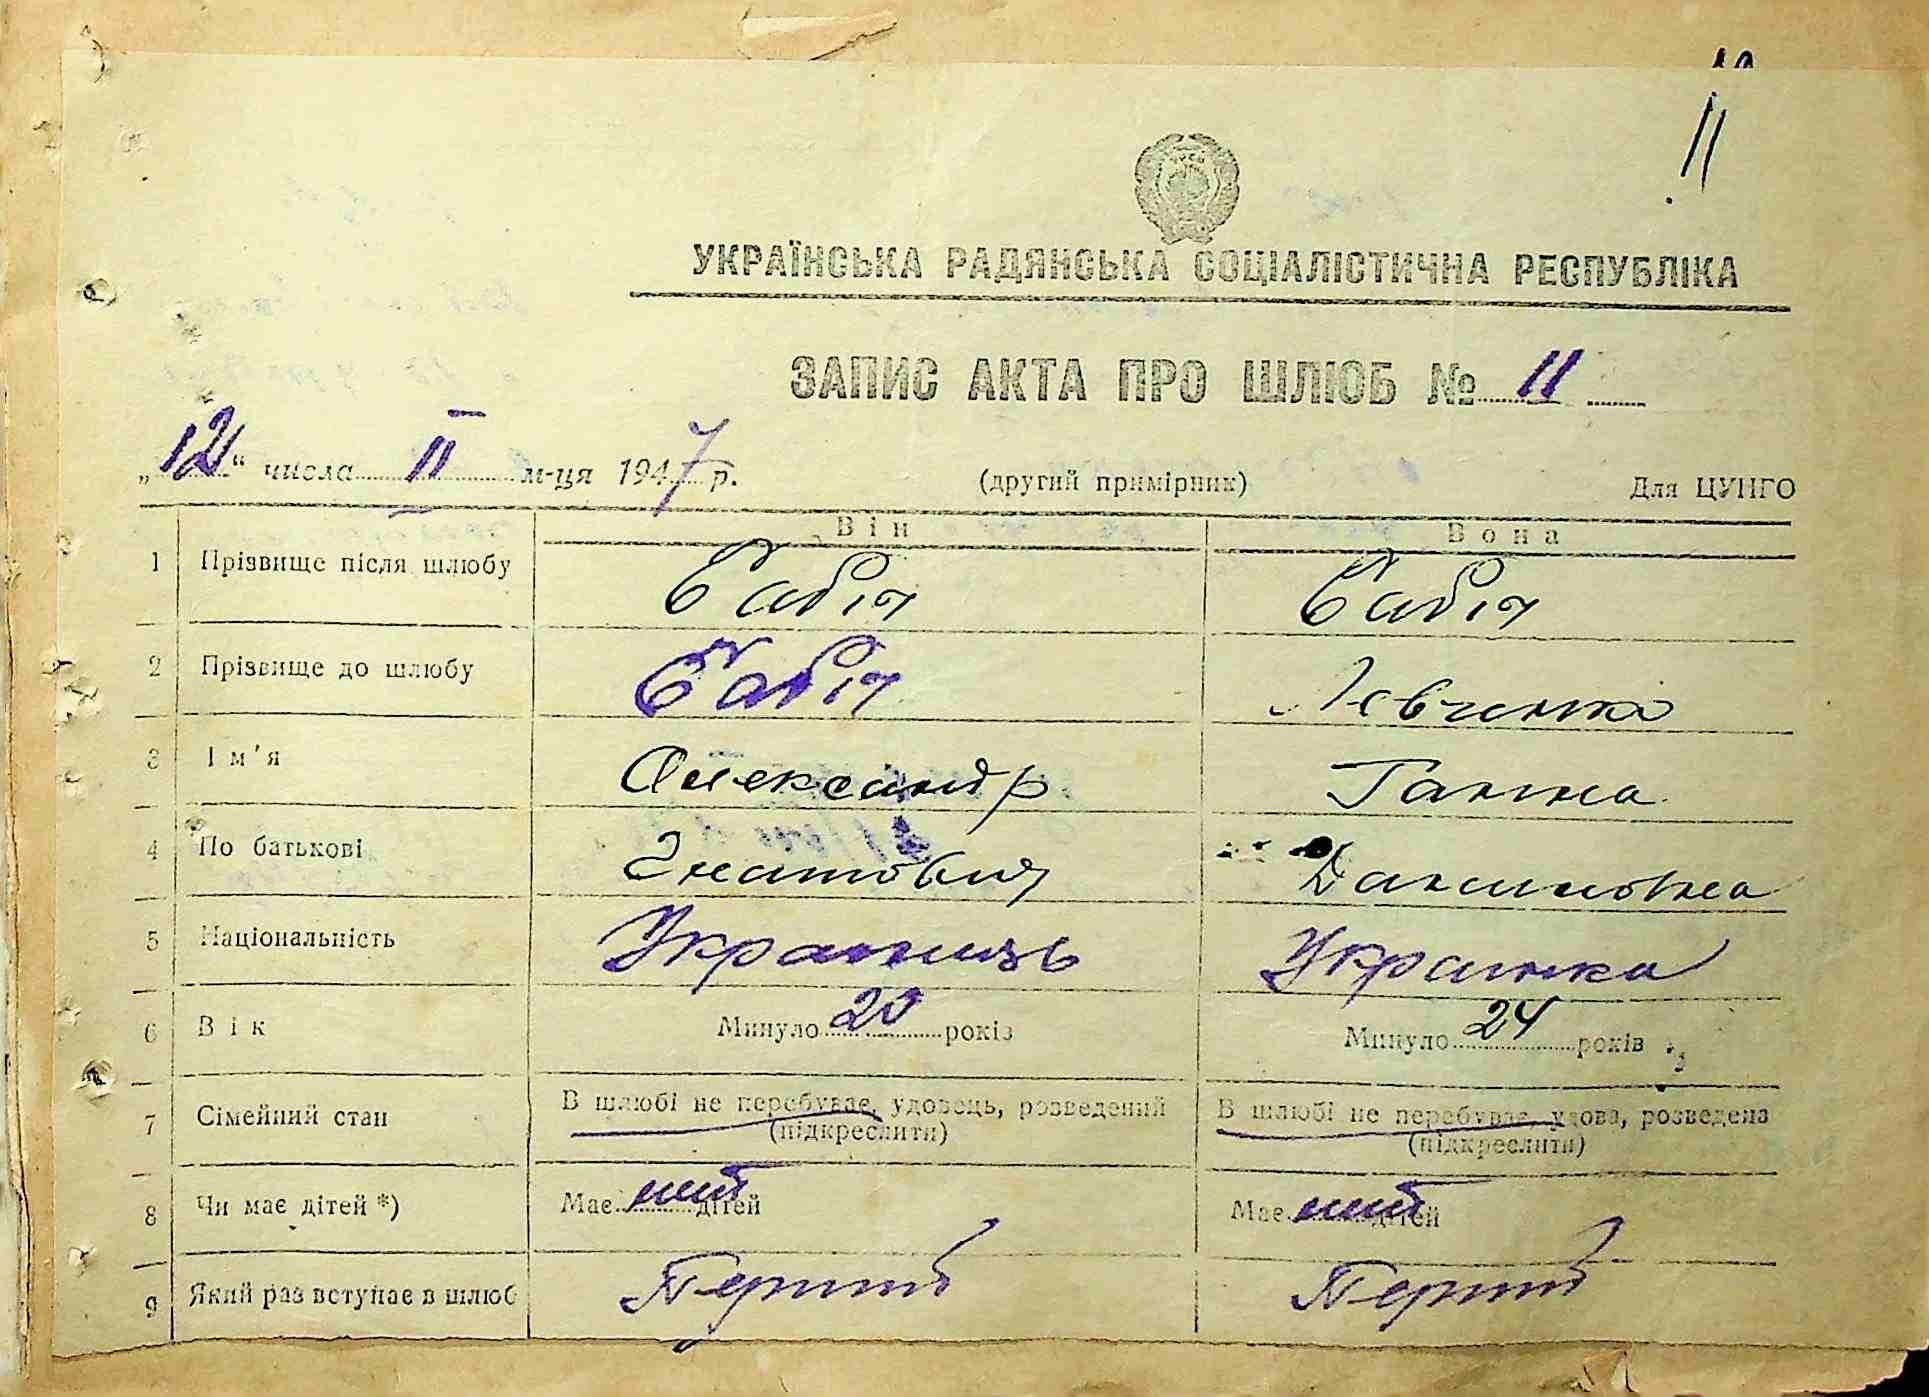 11
УКРАЇНСЬКА РАДЯНСЬКА СОЦІАЛІСТИЧНА РЕСПУБЛІКА
ЗАПИС АКТА ПРО ШЛЮБ № 11
„12“ числа II м-ця 1947 р. (другий примірник) Для ЦУНГО
Він Вона
1 Прізвище після шлюбу Бабіч Бабіч
2 Прізвище до шлюбу Бабіч Левченко
3 Ім'я Олександр Ганна
4 По батькові Гнатович Даниловна
5 Національність Украинец Украинка
6 Вік Минуло 20 років Минуло 24 років
7 Сімейний стан В шлюбі не перебуває, удовець, розведений В шлюбі не перебуває, удова, розведена
(підкреслити) (підкреслити)
8 Чи має дітей *) Має дітей Має дітей
9 Який раз вступає в шлюб Перший Перший